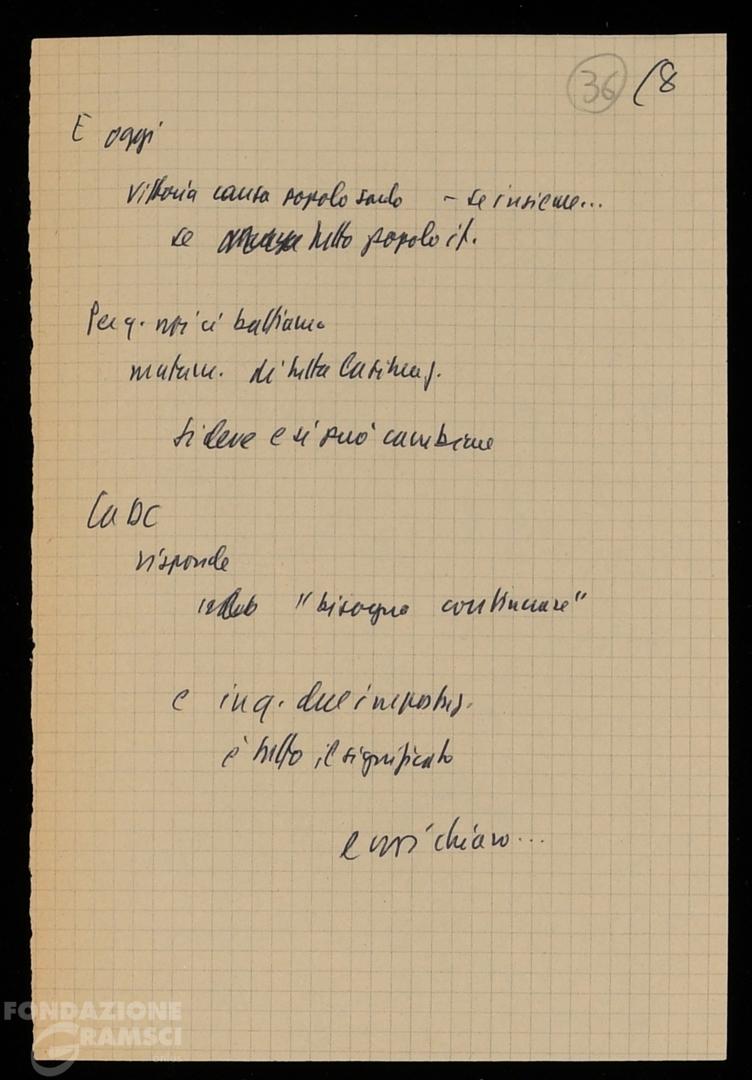 36 (8
E oggi
vittoria causa popolo sardo – se insieme...
se tutto popolo it.
Per q. noi ci battiamo
mutam. di tutta la
si deve e si può cambiare
La DC
risponde
"bisogna continuare"
e in q. due impostaz.
è tutto il significato
e così chiaro...
FONDAZIONE
GRAMSCI